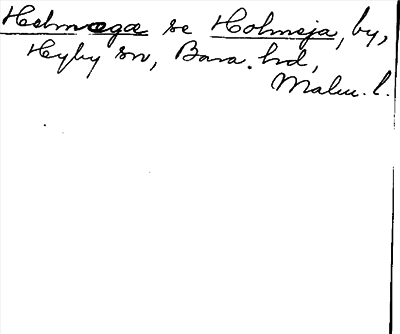 Helmega se Holmeja, by,
Hyby sn, Bara. hd,
Malm. l.